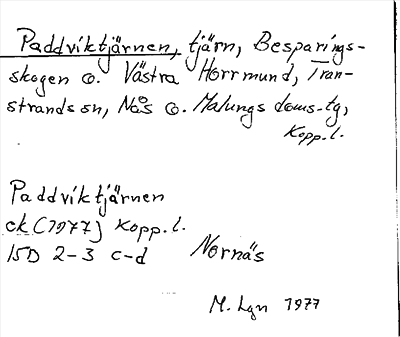 Paddviktjärnen, tjärn, Besparings-
skogen o. Västra Horrmund, Tran-
strands sn, Nås o. Malungs doms.tg,
Kopp.l.
Paddviktjärnen
ek (1977) Kopp.l.
15D 2-3 c-d Nornäs
M. Lgn 1977